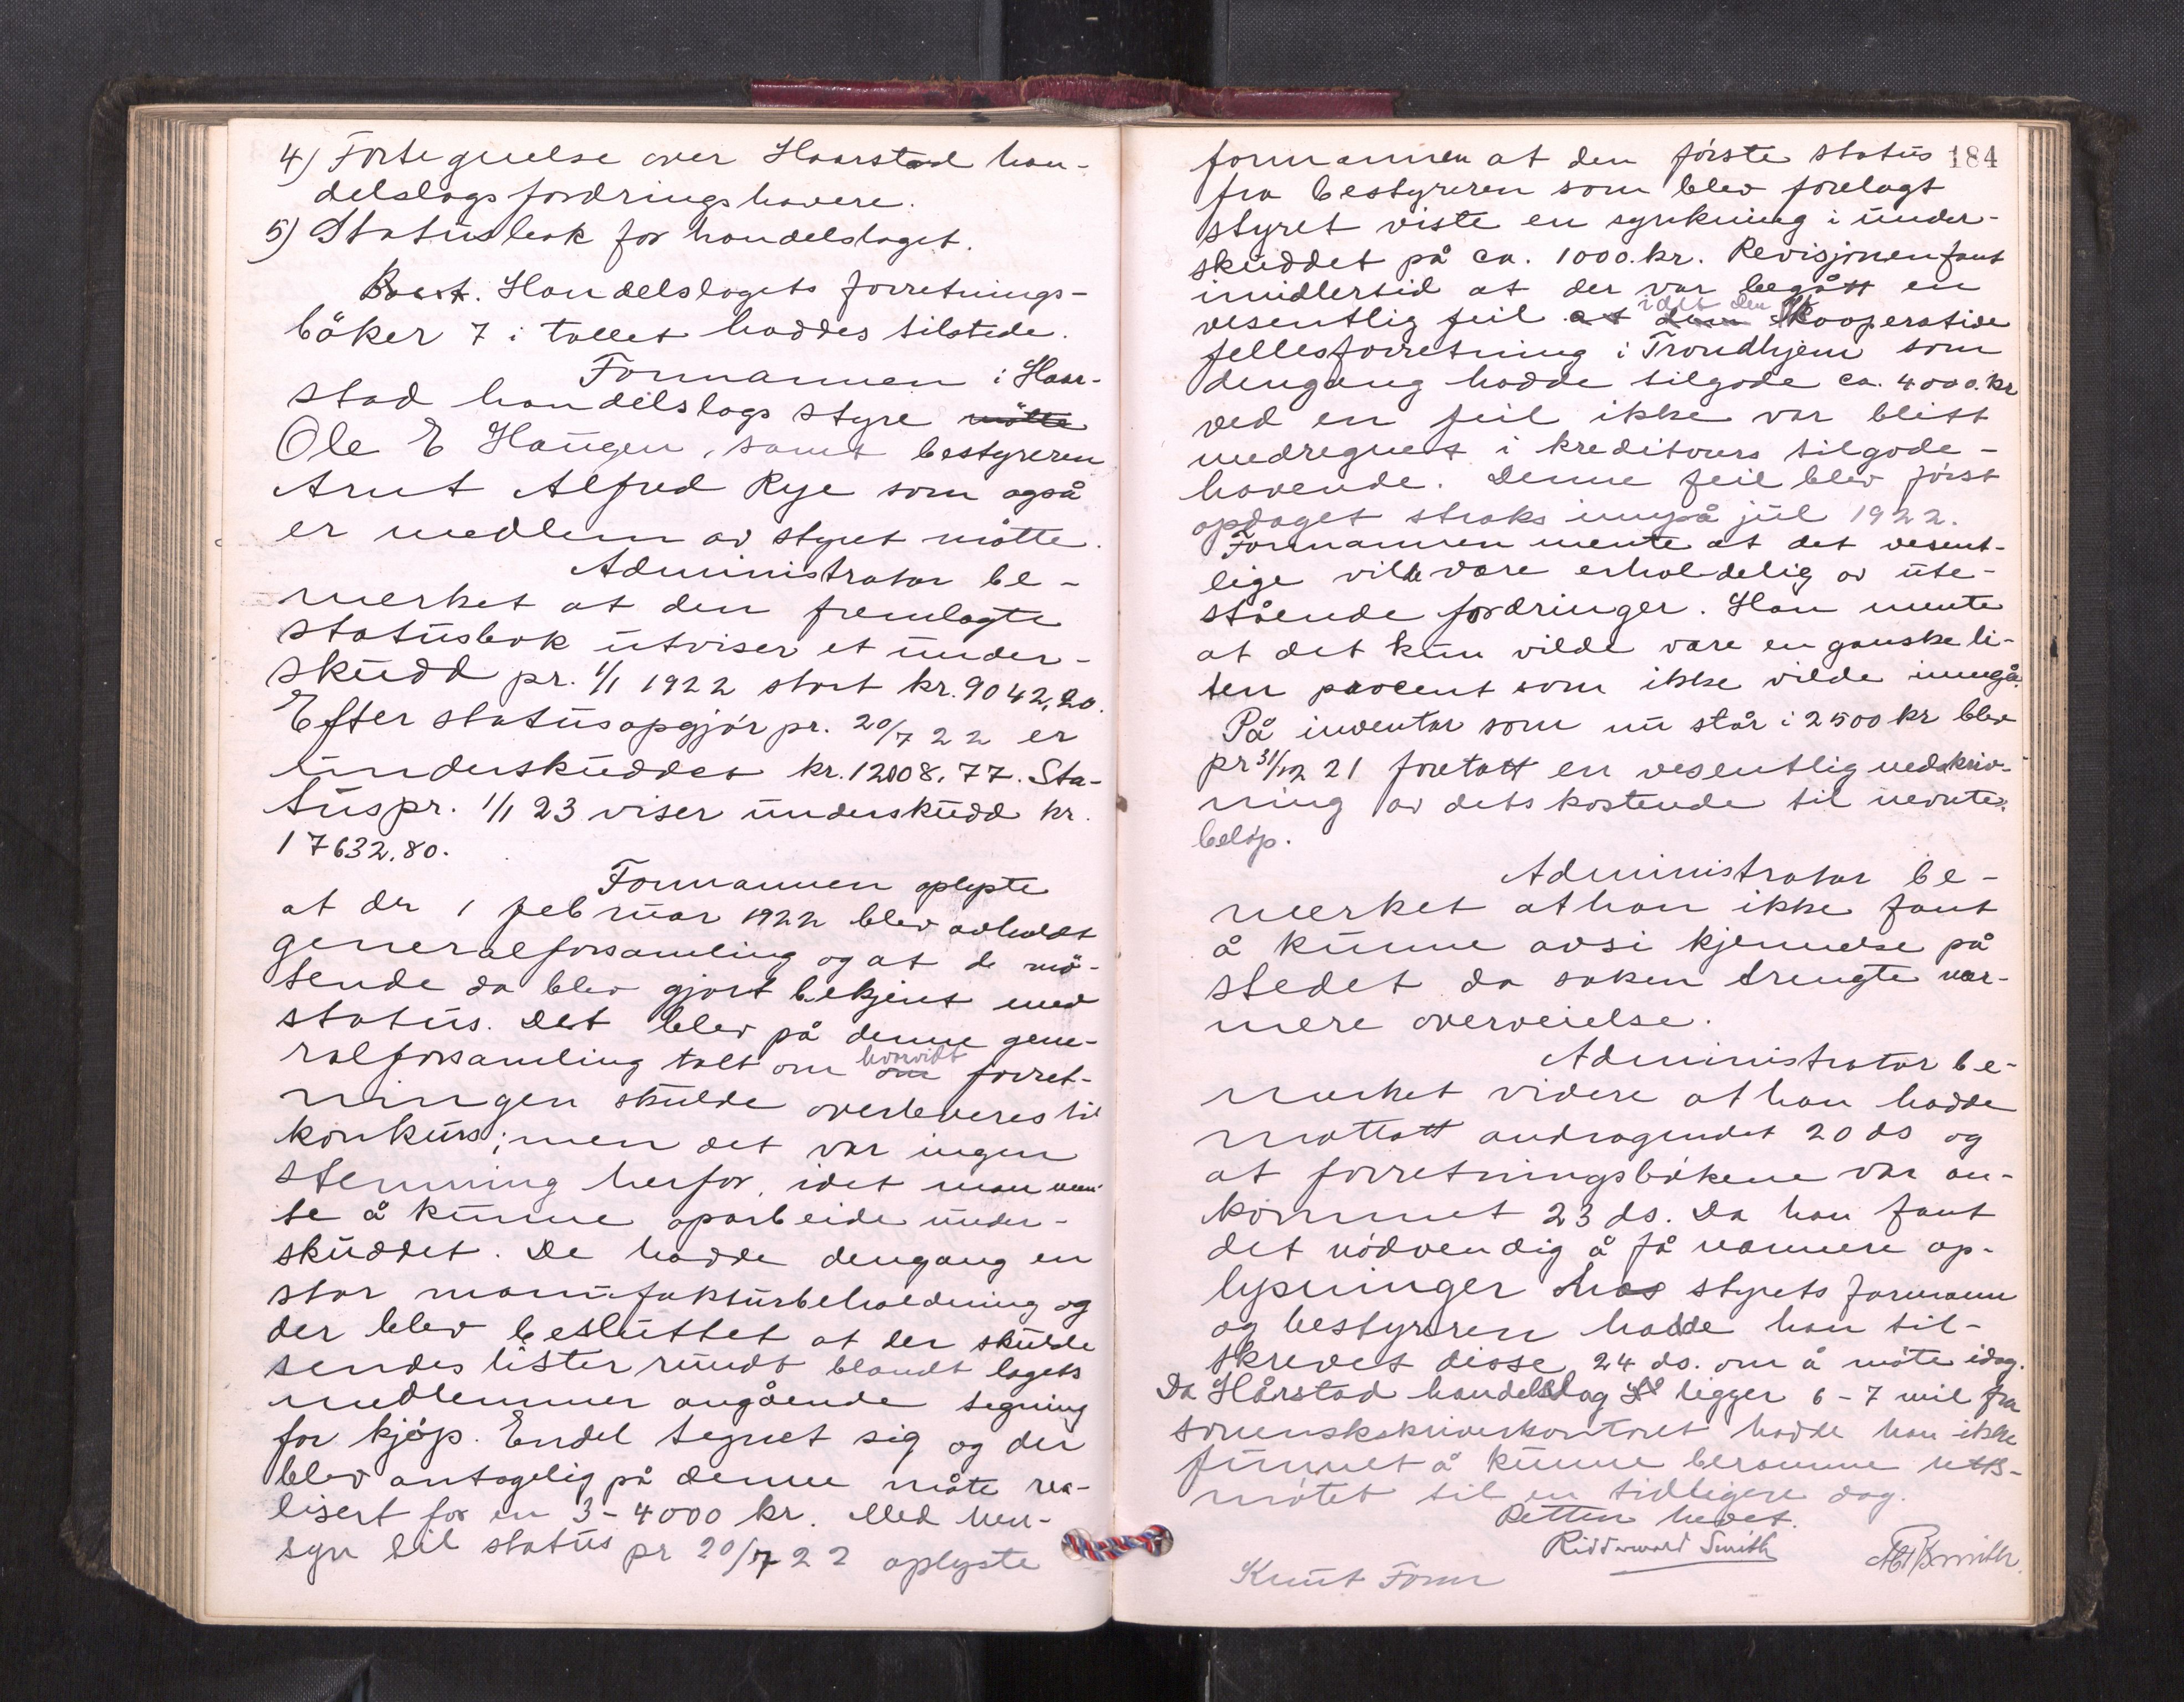 4) Fortegnelse over Haarstad han-
delslags fordringshavere.
5) Statusbok for handelslaget.
Handelslagets forretnings-
bøker 7 i tallet haddes tilstede.
Formannen i Haar-
stad handelslags styre møtte
Ole E Haugen, samt bestyreren
Arnt Alfred Rye som også
er medlem av styret møtte.
Administrator be-
merket at den fremlagte
statusbok utviser et under-
skudd pr. 1/1 1922 stort kr. 9042,20.
Efter statusopgjør pr. 20/7 22 er
underskuddet kr. 12008.77. Sta-
tus pr. 1/1 23 viser underskudd kr.
17632.80.
Formannen oplyste
at der 1 februar 1922 blev avholdt
generalforsamling og at de mø-
tende da blev gjort bekjent med
status. Det blev på denne gene-
ralforsamling talt om om hvorvidt forret-
ningen skulde overleveres til
konkurs; men det var ingen
stemning herfor, idet man men-
te å kunne oparbeide under-
skuddet. De hadde dengang en
stor manufakturbeholdning og
der blev besluttet at der skulde
sendes lister rundt blandt lagets
medlemmer angående tegning
for kjøp. Endel tegnet sig og der
blev antagelig på denne måte rea-
lisert for en 3-4000 kr. Med hen-
syn til status pr 20/7 22 oplyste
184
formannen at den første status
fra bestyreren som blev forelagt
styret viste en synkning i under-
skuddet på ca. 1000.kr. Revisjonen fant
imidlertid at der var begått en
vesentlig feil at den idet den Kooperative
fellesforretning i Trondhjem som
dengang hadde tilgode ca. 4000.kr
ved en feil ikke var blitt
medregnet i kreditors tilgode-
havende. Denne feil blev først
opdaget straks innpå jul 1922.
Formannen mente at det vesent-
lige vilde være erholdelig av ute-
stående fordringer. Han mente
at det kun vilde være en ganske li-
ten procent som ikke vilde inngå.
På inventar som nu står i 2500 kr blev
pr 31/12 21 foretatt en vesentlig nedskriv-
ning av dets kostende til nevnte
beløp.
Administrator be-
merket at han ikke fant
å kunne avsi kjennelse på
stedet da saken trengte nær-
mere overveielse.
Administrator be-
merket videre at han hadde
mottatt andragendet 20 ds og
at forretningsbøkene var an-
kommet 23 ds. Da han fant
det nødvendig å få nærmere op-
lysninger hos styrets formann
og bestyreren hadde han til-
skrevet disse 24 ds. om å møte idag.
Da Hårstad handelslag ligger 6-7 mil fra
sorenskriverkontoret hadde han ikke
funnet å kunne beramme retts-
møtet til en tidligere dag.
Retten hevet.
Ridderwold Smith
Knut Form